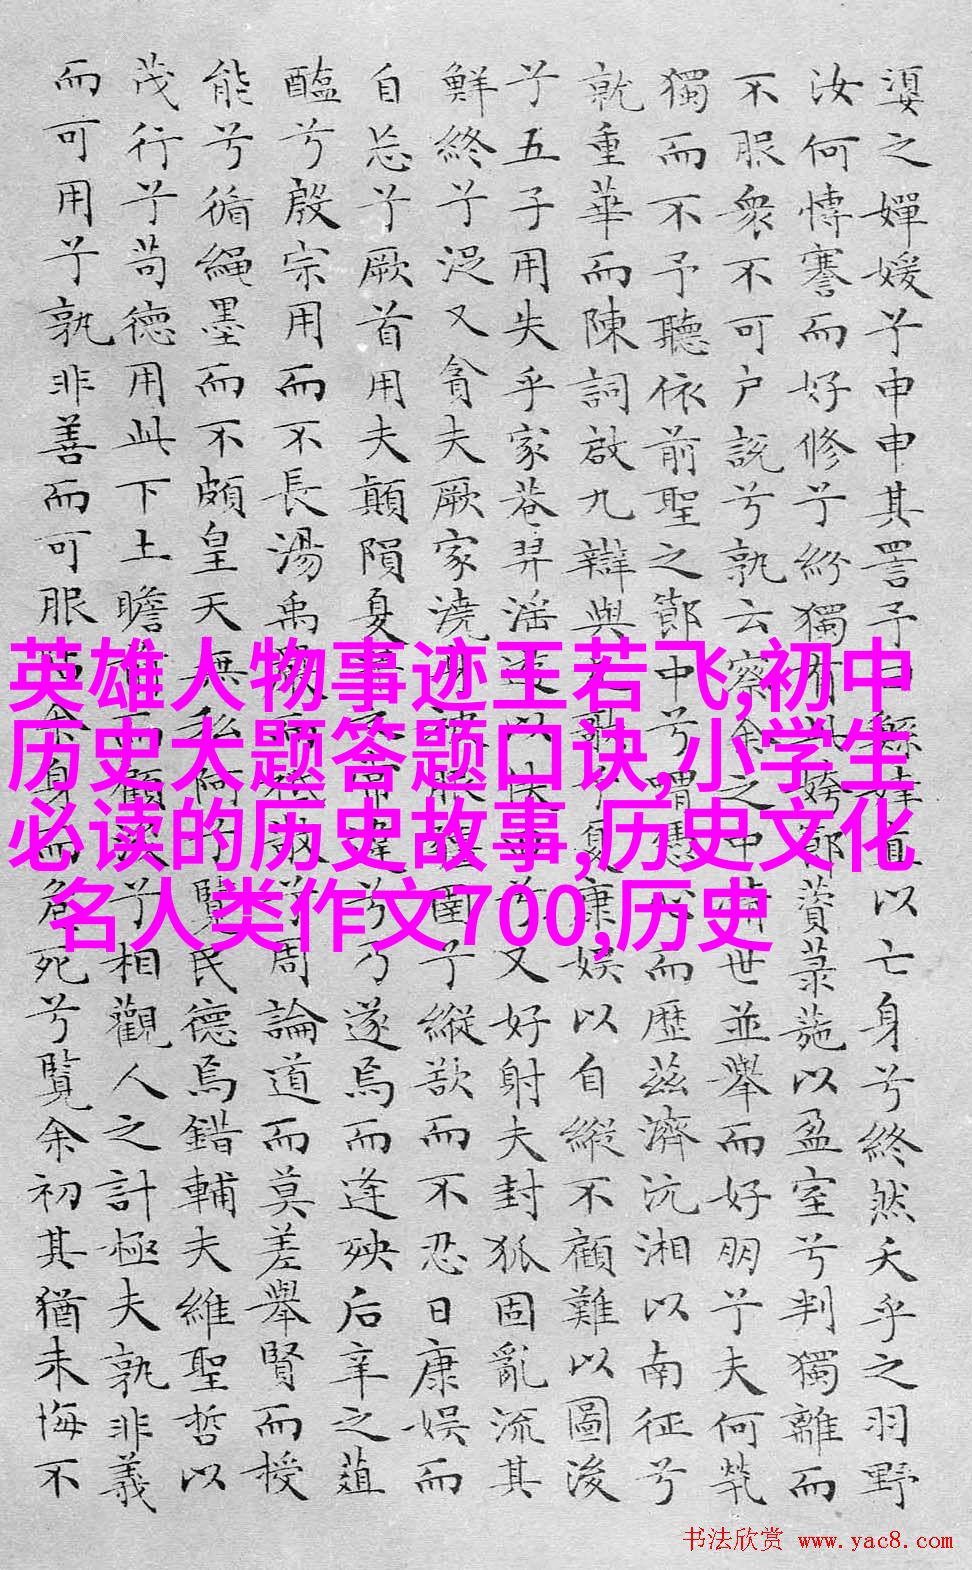 嬃之嬋媛兮申申其詈予曰鯀婞直以亡身兮終然夭乎之羽野
汝何博謇而好修兮紛獨有此姱節薋菉葹以盈室兮判獨離而
不服衆不可户說兮孰云察余之中情世並舉而好朋兮夫何煢
獨而不予聽依前聖之節中兮喟憑心而歷茲濟沅湘以南征兮
就重華而陳詞啟九辯與九歌兮夏康娛以自縱不顧難以圖後
兮五子用失乎家巷羿淫遊以佚畋兮又好射夫封狐固亂流其
鮮終兮浞又貪夫厥家澆身被服強圉兮縱欲而不忍日康娛而
自忘兮厥首用夫顛隕夏桀之常違兮乃遂焉而逢殃后辛之菹
醢兮殷宗用而不長湯禹儼而祗敬兮周論道而莫差舉賢而授
能兮循繩墨而不頗皇天無私阿兮覽民德焉錯輔夫維聖哲以
茂行兮苟德用此下土瞻前而顧後兮相觀人之計極夫孰非義
而可用兮孰非善而可服阽余身而危死兮覽余初其猶未悔不
英雄人物事迹王若飞,初中
历史大题答题口诀,小学生
必读的历史故事,历史文化
名人类作文700,历史
书法欣赏 www.yac8.com